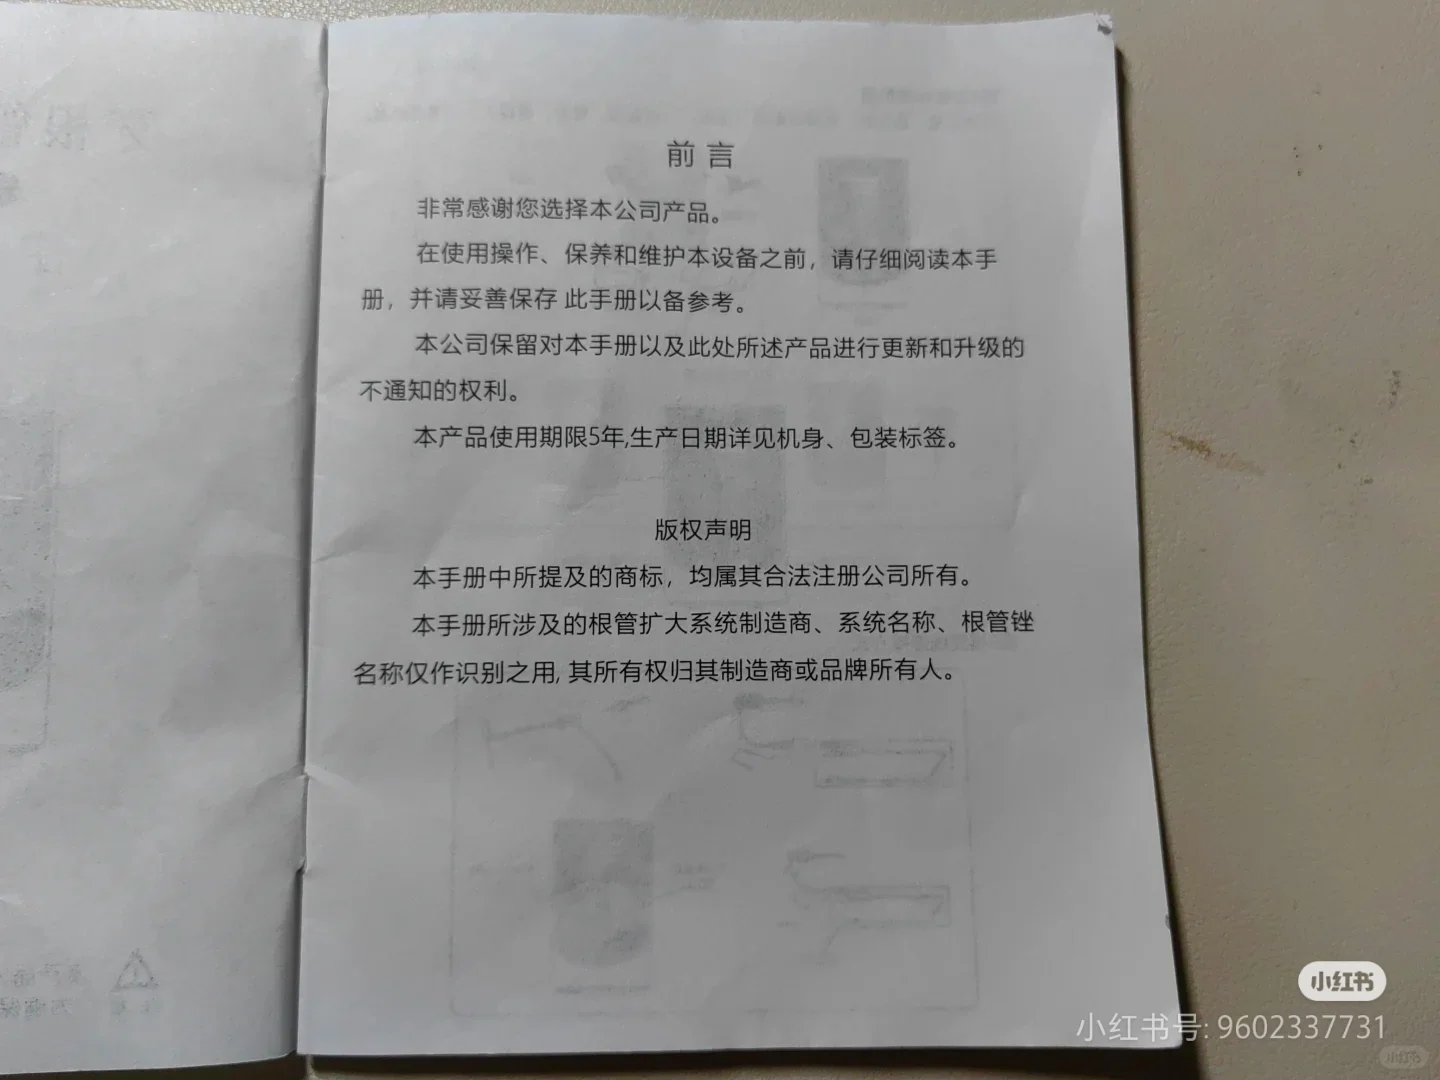 前言
非常感谢您选择本公司产品。
在使用操作、保养和维护本设备之前，请仔细阅读本手
册，并请妥善保存 此手册以备参考。
本公司保留对本手册以及此处所述产品进行更新和升级的
不通知的权利。
本产品使用期限5年,生产日期详见机身、包装标签。
版权声明
本手册中所提及的商标，均属其合法注册公司所有。
本手册所涉及的根管扩大系统制造商、系统名称、根管锉
名称仅作识别之用, 其所有权归其制造商或品牌所有人。
小红书
小红书号: 9602337731
小红书